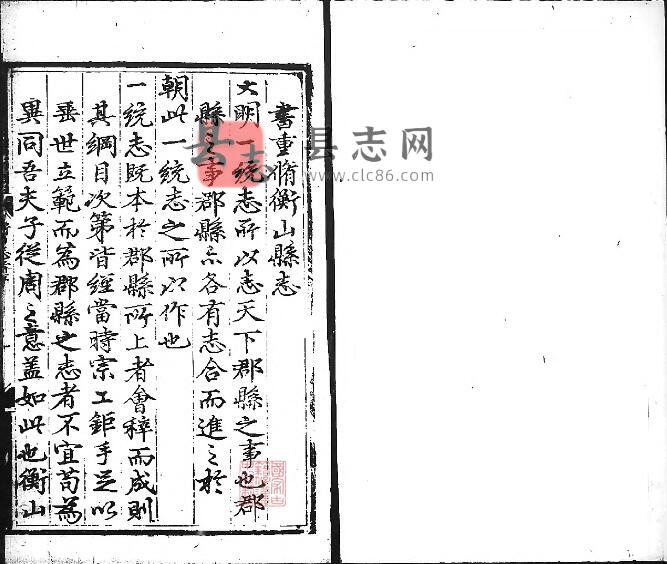 書重脩衡山縣志
大明一統志所以志天下郡縣之事也郡
縣之事郡縣亦各有志合而進之於
朝此一統志之所以作也
一統志既本於郡縣所上者會稡而成則
其綱目次第皆經當時宗工鉅手足以
垂世立範而為郡縣之志者不宜苟為
異同吾夫子從周之意蓋如此也衡山
县志
县志网
www.clc86.com